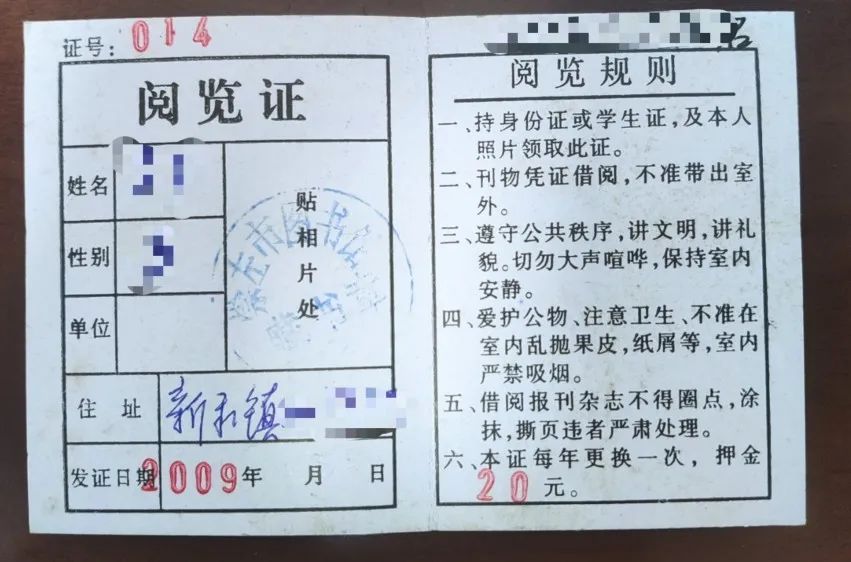 证号：014
阅览证
姓名
性别
单位
贴相片处
市图书
住址 新和镇
发证日期 2009年 月 日
阅览规则
一、持身份证或学生证，及本人
照片领取此证。
二、刊物凭证借阅，不准带出室
外。
三、遵守公共秩序，讲文明，讲礼
貌。切勿大声喧哗，保持室内
安静。
四、爱护公物、注意卫生、不准在
室内乱抛果皮，纸屑等，室内
严禁吸烟。
五、借阅报刊杂志不得圈点，涂
抹，撕页违者严肃处理。
六、本证每年更换一次，押金
20元。